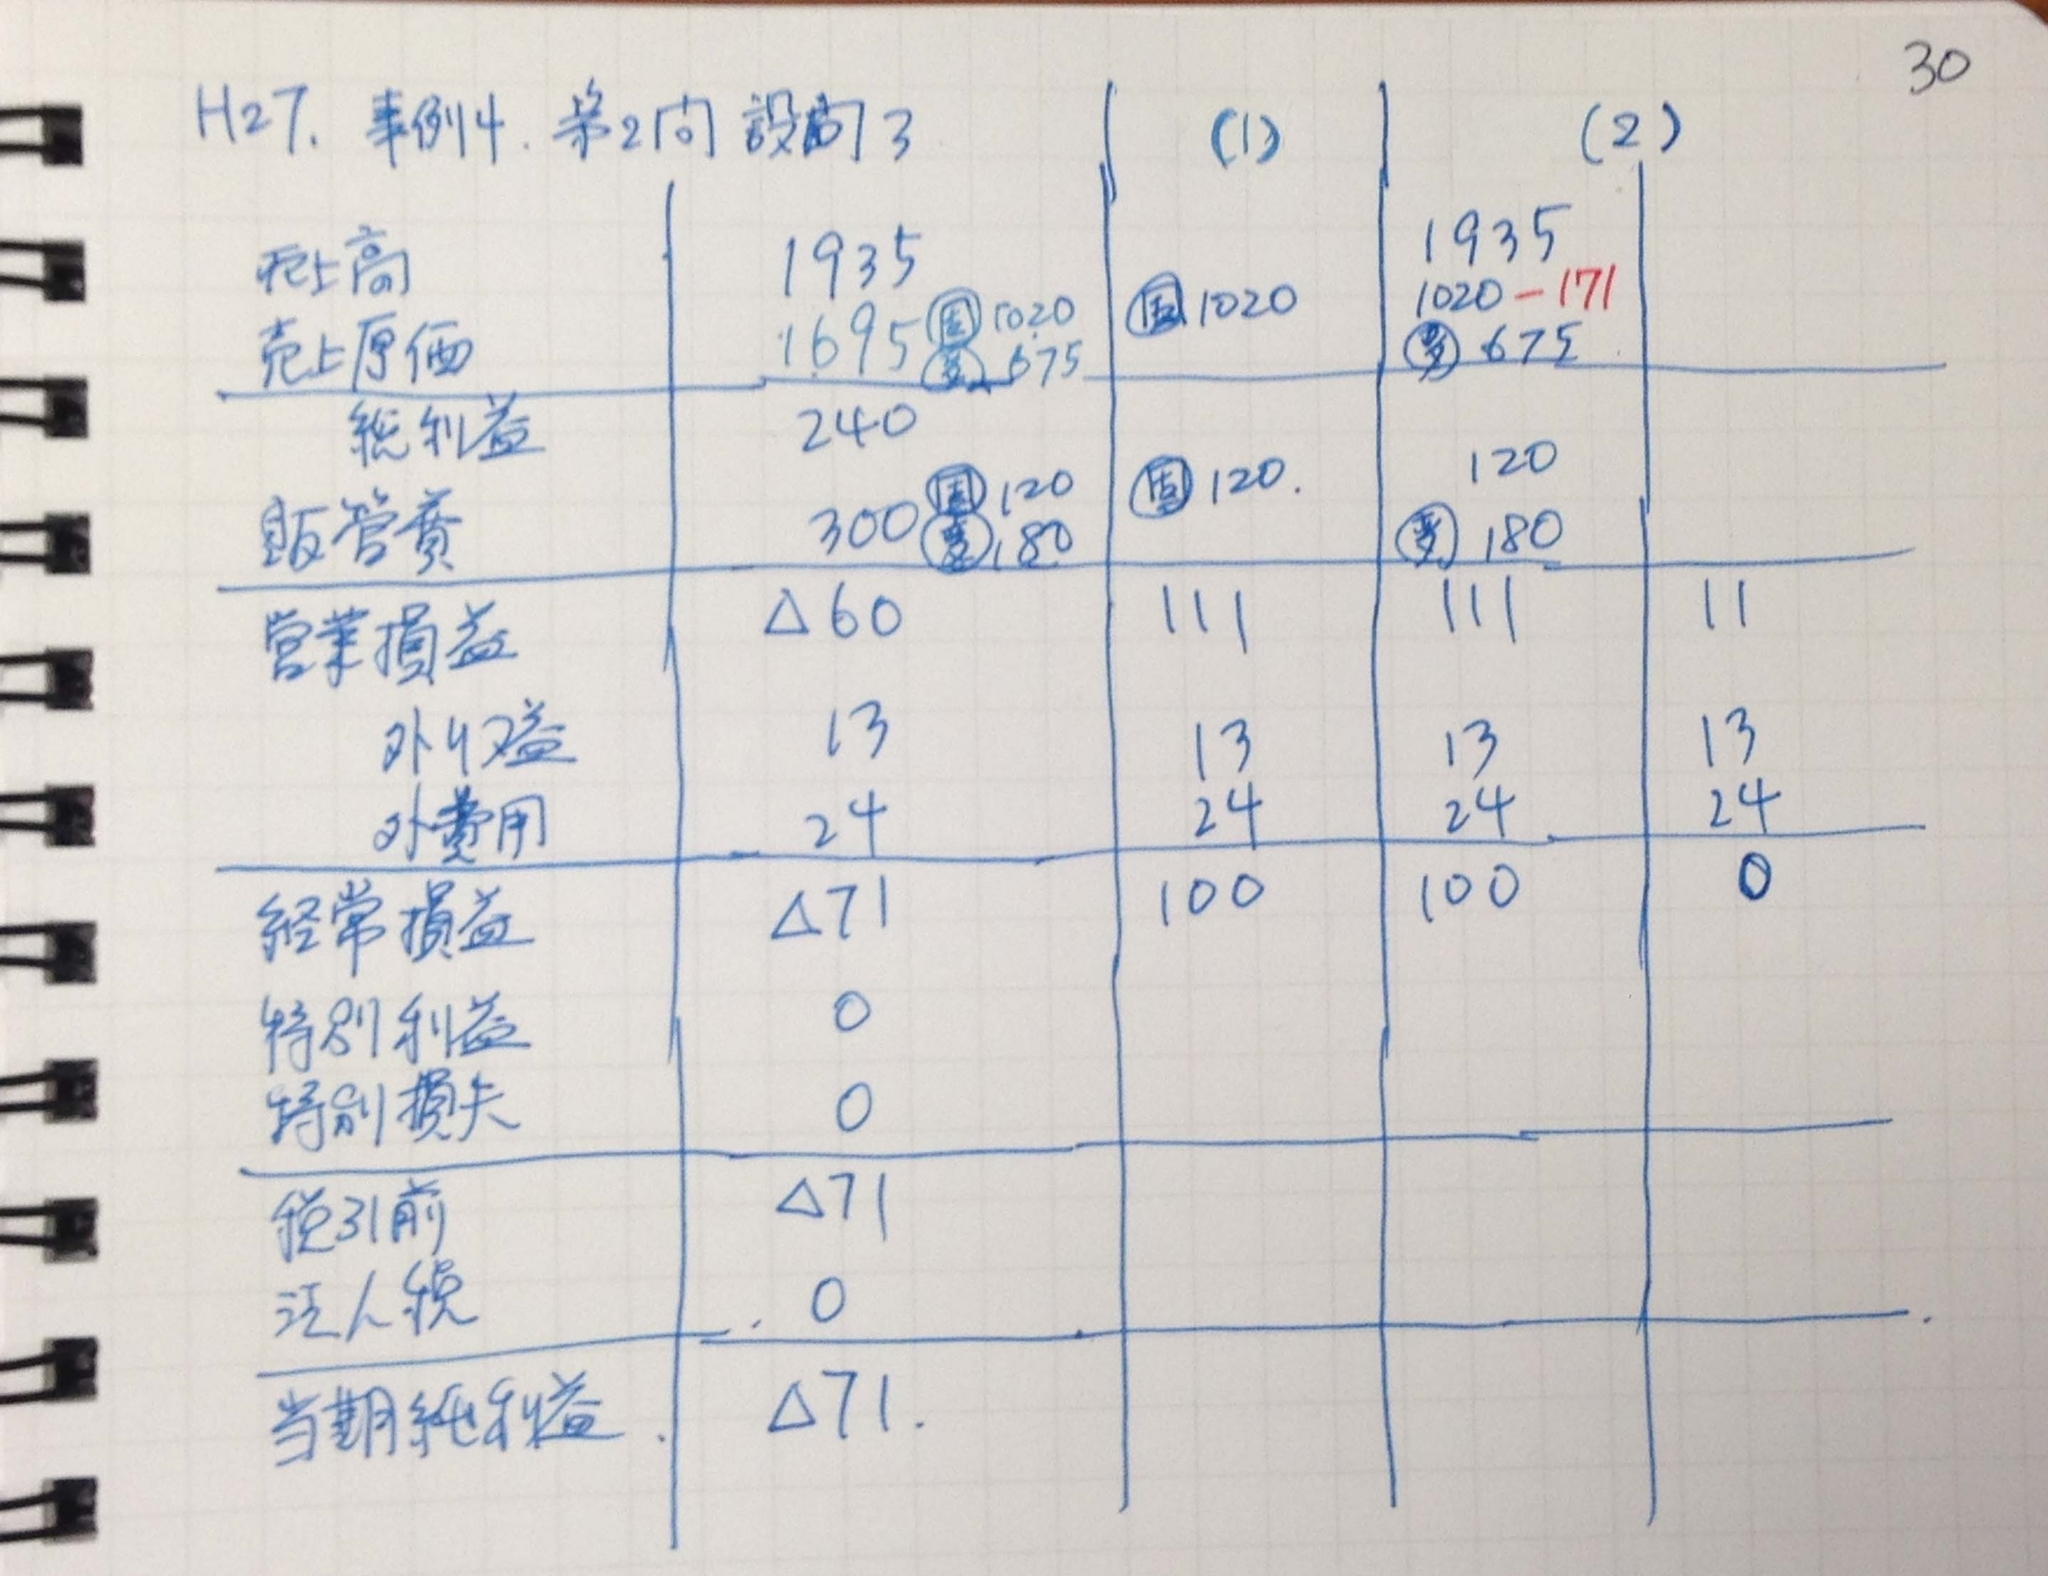 30
H27. 事例4. 第2問 設問3 (1) (2)
売上高 1935 1935
売上原価 1695 固 1020 変 675 固 1020 1020-171 変 675
総利益 240
販管費 300 固 120 変 180 固 120. 120 変 180
営業損益 △60 111 111 11
外収益 13 13 13 13
外費用 24 24 24 24
経常損益 △71 100 100 0
特別利益 0
特別損失 0
税引前 △71
法人税 0
当期純利益. △71.